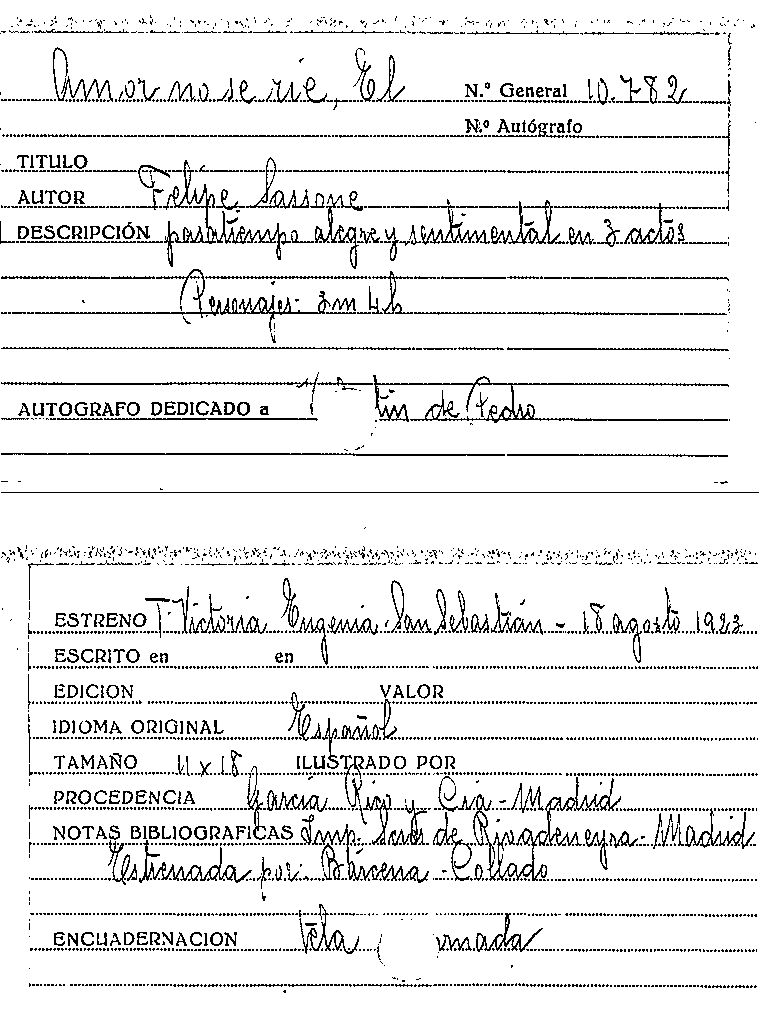 Amor no se rie, El N.º General 10.782
N.º Autógrafo
TITULO
AUTOR Felipe Sassone
DESCRIPCIÓN pasatiempo alegre y sentimental en 3 actos
Personajes: 3m 4h
AUTOGRAFO DEDICADO a tin de Pedro
ESTRENO T. Victoria Eugenia. San Sebastián - 18 agosto 1923
ESCRITO en en
EDICION VALOR
IDIOMA ORIGINAL Español
TAMAÑO 11 x 18 ILUSTRADO POR
PROCEDENCIA García Rico y Cia - Madrid
NOTAS BIBLIOGRAFICAS Imp. Sucs de Rivadeneyra - Madrid
Estrenada por: Bárcena - Collado
ENCUADERNACION Tela mada